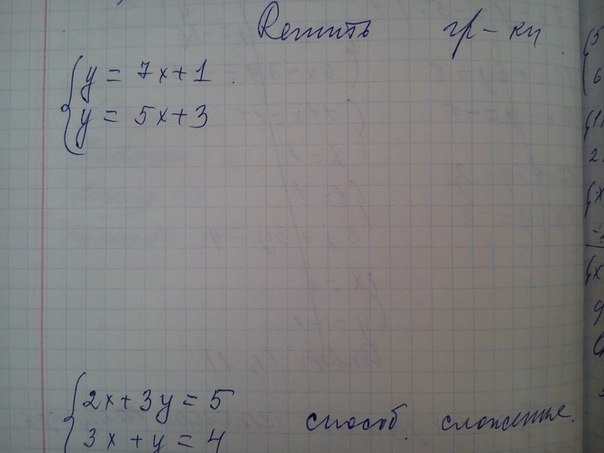 Решить гр-ки
y = 7x+1
y = 5x+3
2x+3y=5
способ сложение.
3x+y=4